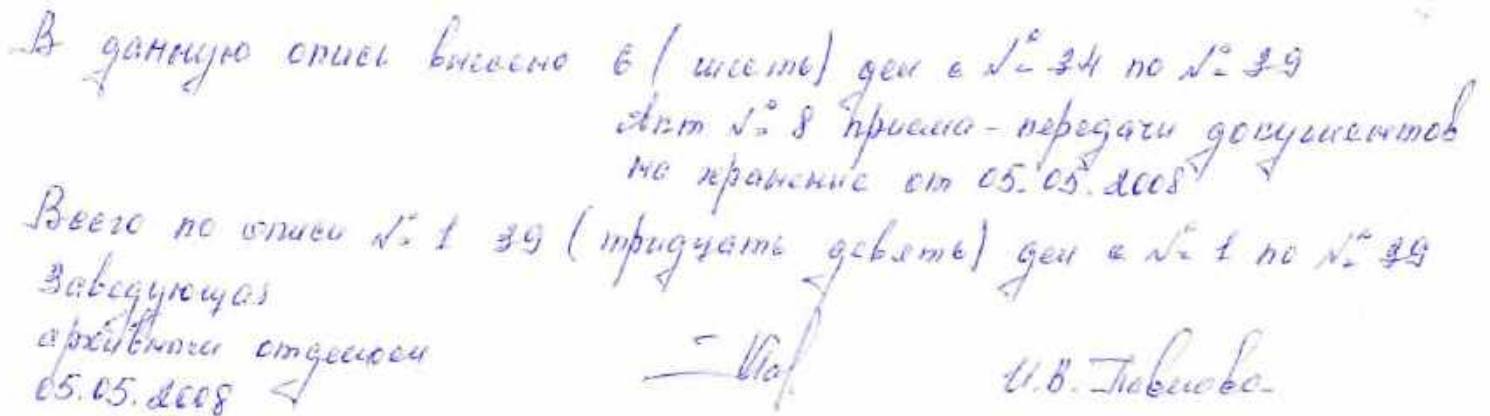 В данную опись внесено 6 (шесть) дел с № 34 по № 39
Акт № 8 приема-передачи документов
на хранение от 05.05.2008
Всего по описи № 1 39 (тридцать девять) дел с № 1 по № 39
Заведующая
архивным отделом
05.05.2008 И.В. Павлова